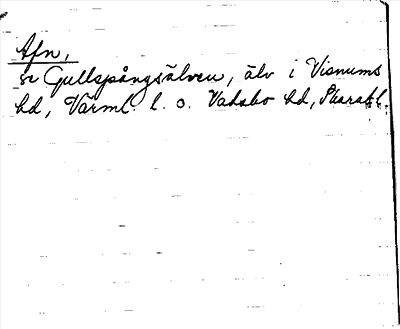 Afn,
se Gullspångsälven, älv i Visnums
hd, Värml. l. o. Vadsbo hd, Skarab. l.